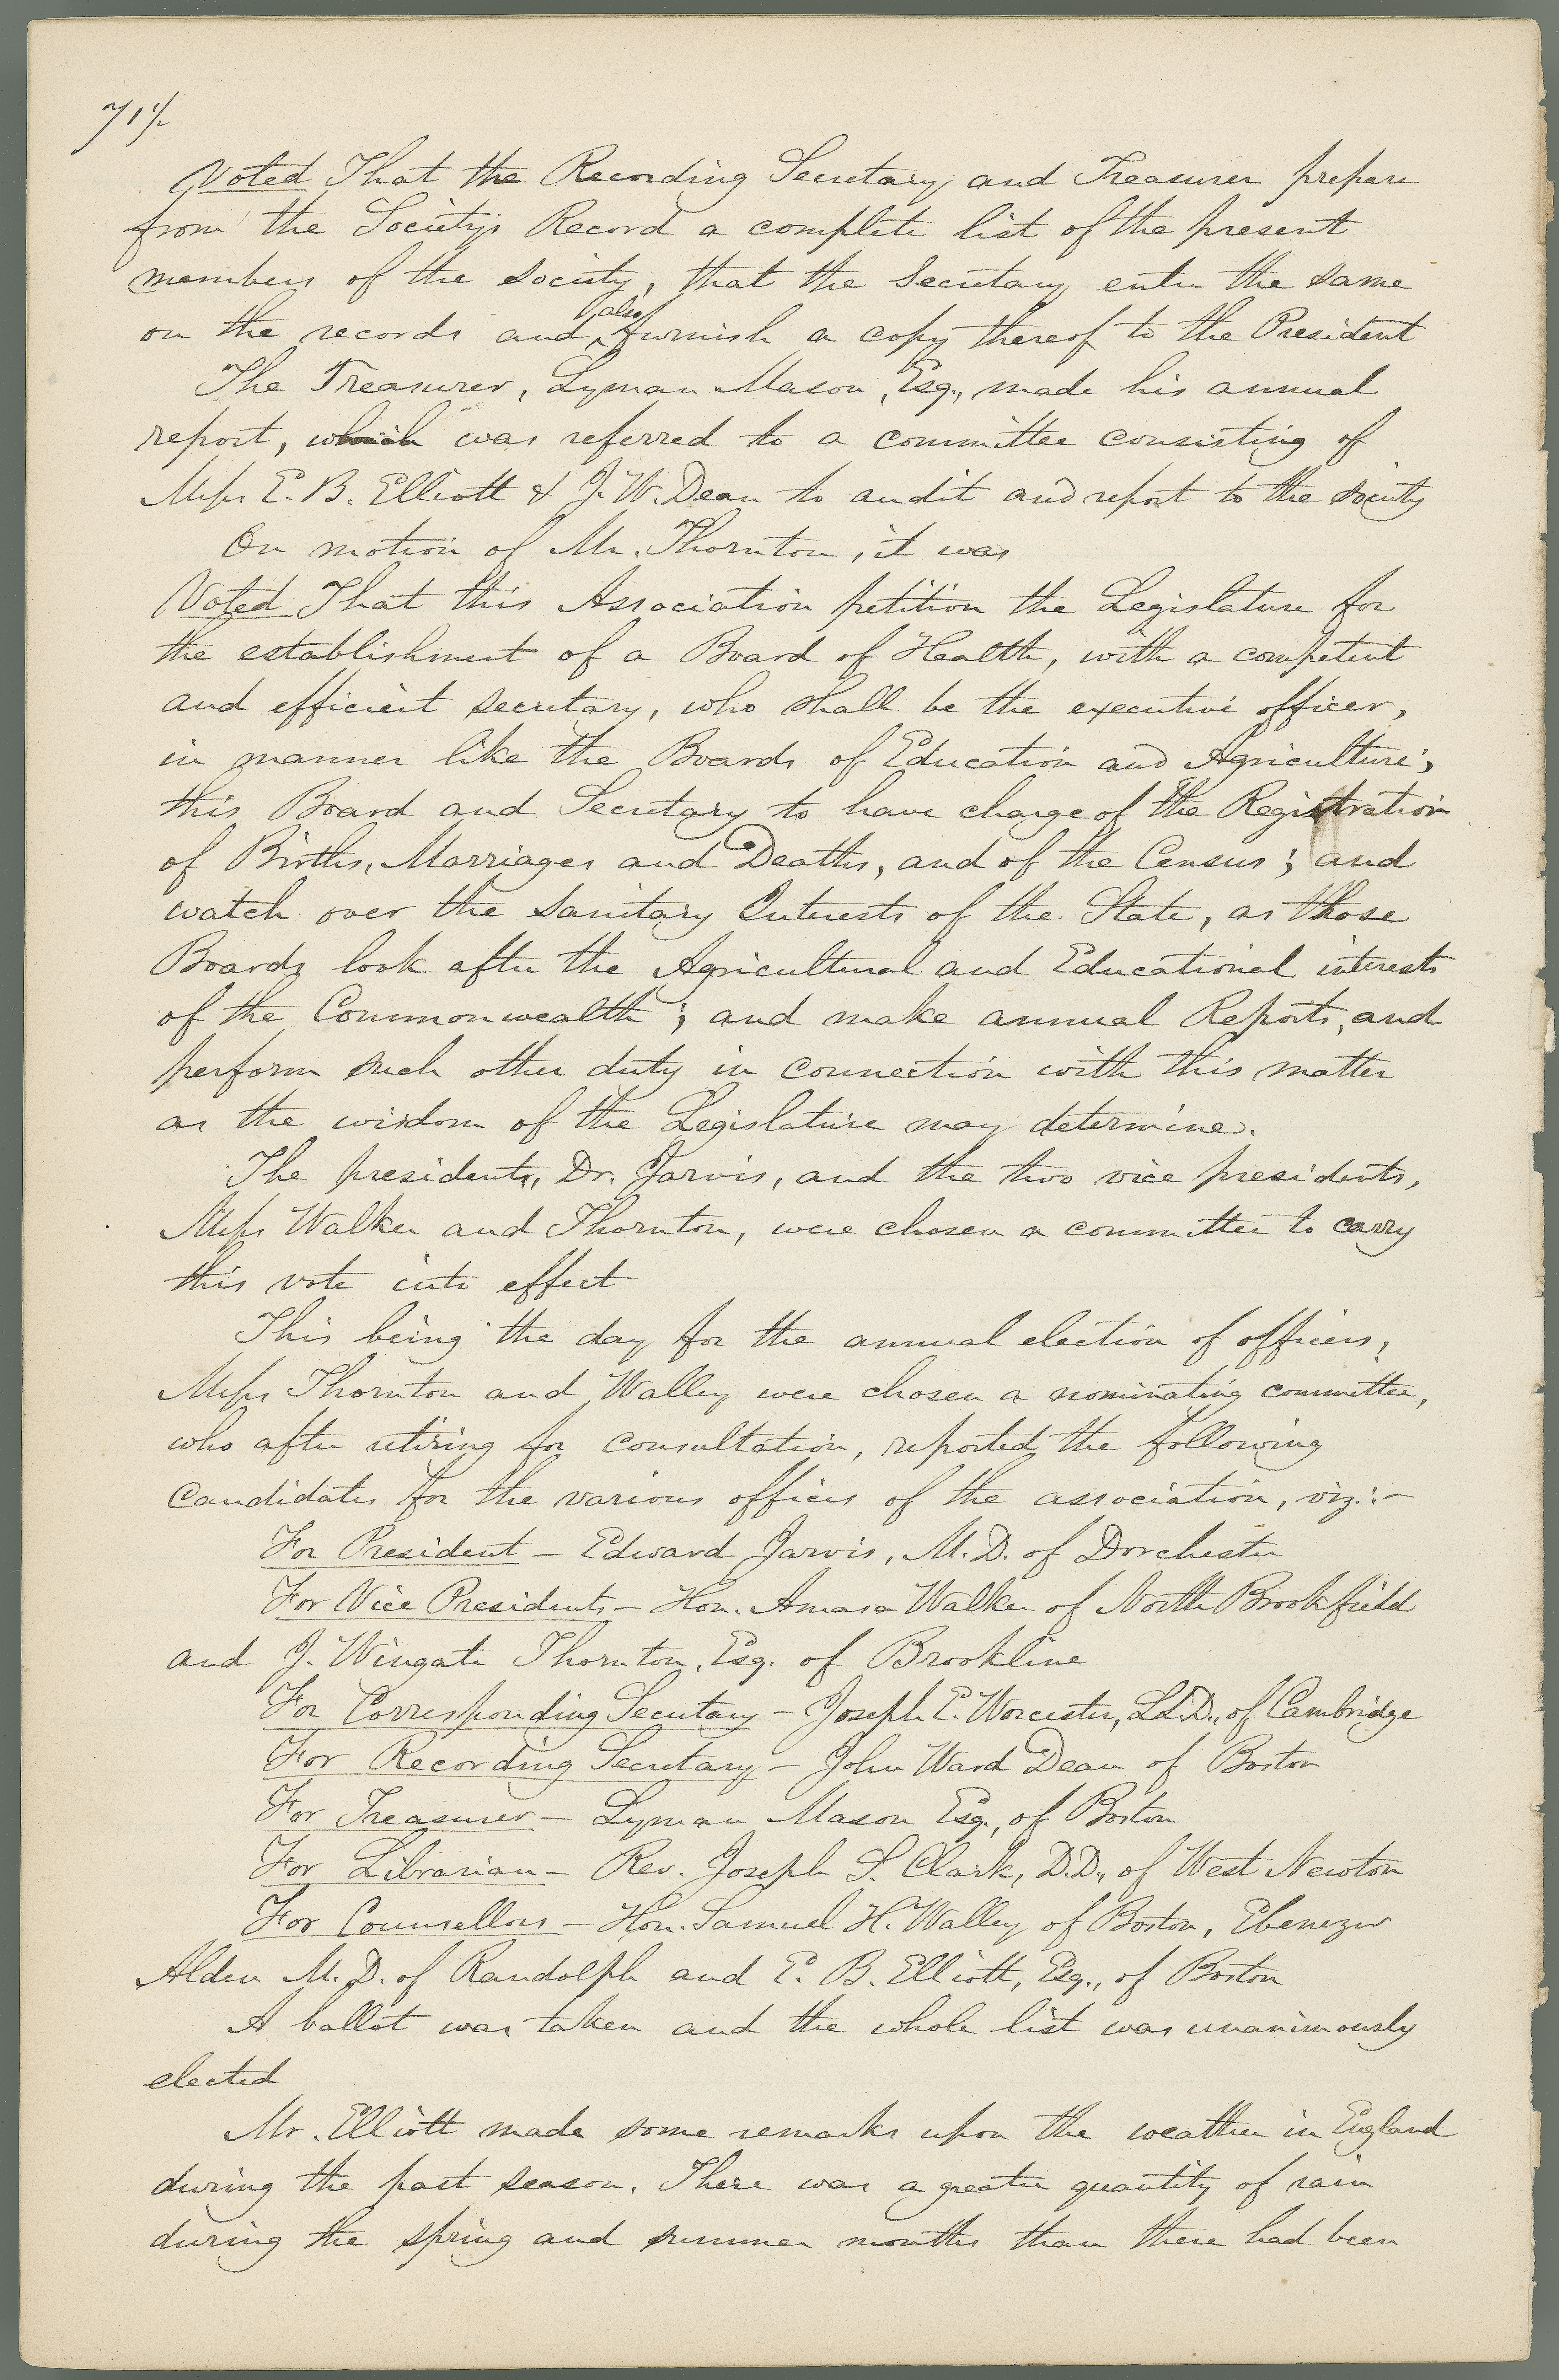 71½
Voted That the Recording Secretary and Treasurer prepare
from the Society's Record a complete list of the present
members of the society, that the Secretary enter the same
on the records and also furnish a copy thereof to the President
The Treasurer, Lyman Mason, Esq., made his annual
report, which was referred to a committee consisting of
Messrs E. B. Elliott & J. W. Dean to audit and report to the society
On motion of Mr. Thornton, it was
Voted That this Association petition the Legislature for
the establishment of a Board of Health, with a competent
and efficient secretary, who shall be the executive officer,
in manner like the Boards of Education and Agriculture;
this Board and Secretary to have charge of the Registration
of Births, Marriages and Deaths, and of the Census; and
watch over the Sanitary Interests of the State, as those
Boards look after the Agricultural and Educational interests
of the Commonwealth; and make annual Reports, and
perform such other duty in connection with this matter
as the wisdom of the Legislature may determine.
The presidents, Dr. Jarvis, and the two vice presidents,
Messrs Walker and Thornton, were chosen a committee to carry
this vote into effect
This being the day for the annual election of officers,
Messrs Thornton and Walley were chosen a nominating committee,
who after retiring for consultation, reported the following
candidates for the various offices of the association, viz.:—
For President — Edward Jarvis, M.D. of Dorchester
For Vice Presidents — Hon. Amasa Walker of North Brookfield
and J. Wingate Thornton, Esq. of Brookline
For Corresponding Secretary — Joseph E. Worcester, LL.D., of Cambridge
For Recording Secretary — John Ward Dean of Boston
For Treasurer — Lyman Mason Esq., of Boston
For Librarian — Rev. Joseph S. Clark, D.D., of West Newton
For Counsellors — Hon. Samuel H. Walley of Boston, Ebenezer
Alden M.D. of Randolph and E. B. Elliott, Esq., of Boston
A ballot was taken and the whole list was unanimously
elected
Mr. Elliott made some remarks upon the weather in England
during the past season. There was a greater quantity of rain
during the spring and summer months than there had been